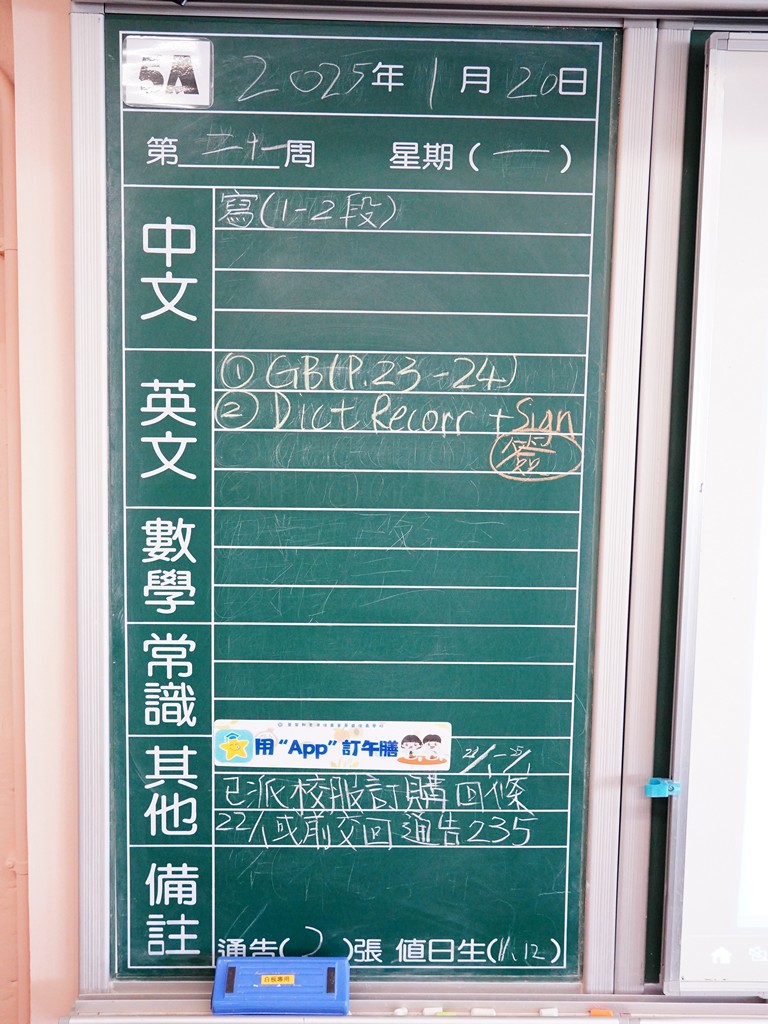 5A 2025年1月20日
第二十一周 星期(一)
中文
寫(1-2段)
英文
① GB(P.23-24)
② Dict Recorr + Sign
簽
數學
常識
其他
用“App”訂午膳
已派校服訂購回條
22/1或前交回通告235
備註
通告(2)張 值日生(11、12)
白板專用